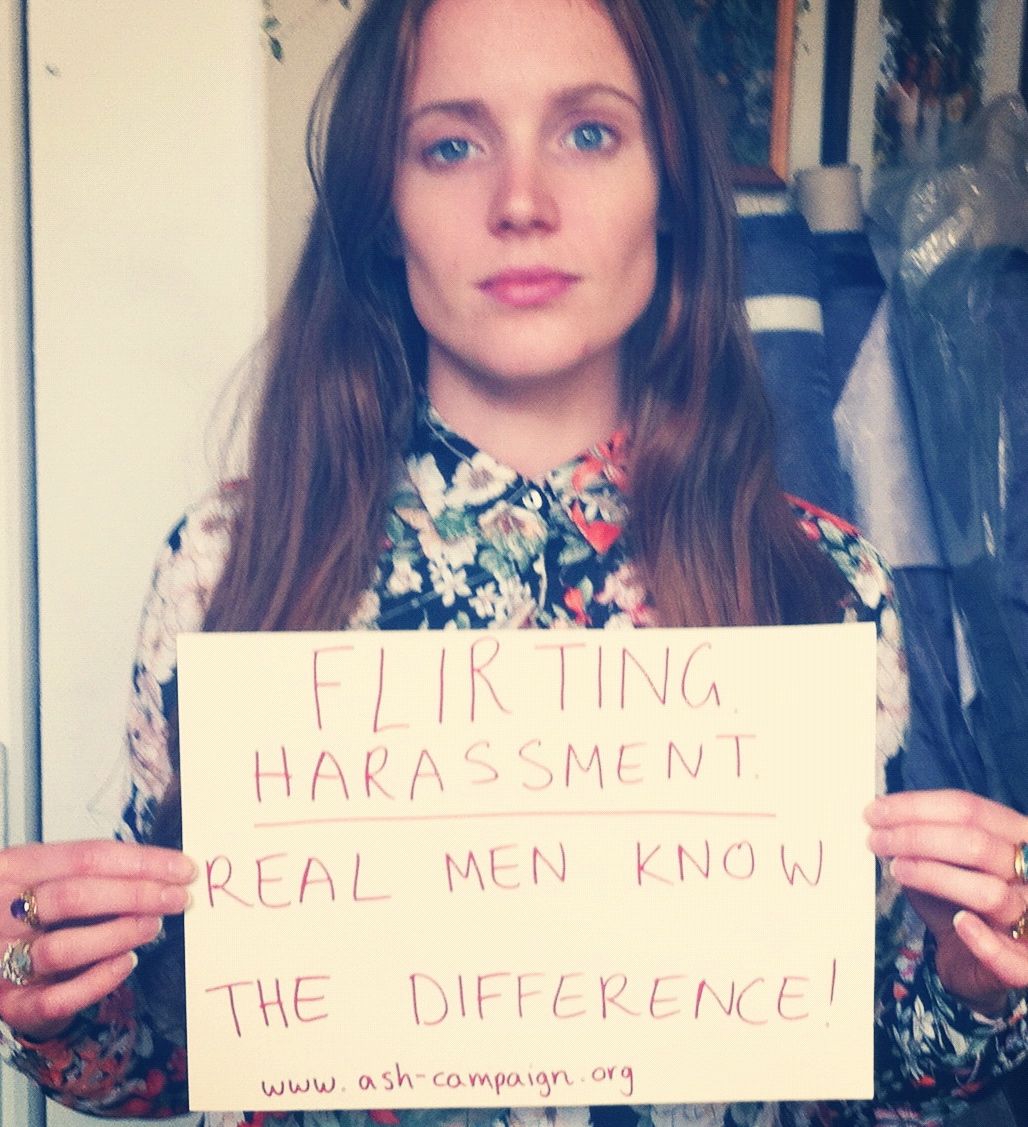 FLIRTING.
HARASSMENT.
REAL MEN KNOW
THE DIFFERENCE!
www.ash-campaign.org